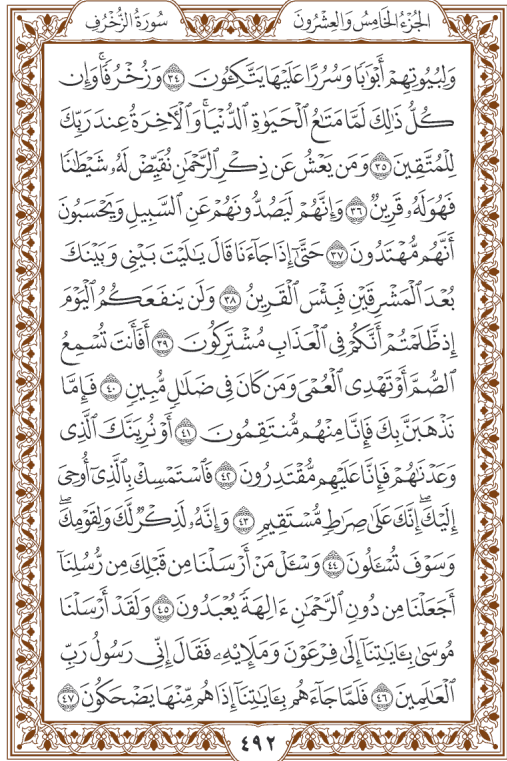 سُورَةُ الزُّخْرُفِ
الجُزْءُ الخَامِسُ وَالعِشْرُونَ
وَلِبُيُوتِهِمْ أَبْوَٰبًا وَسُرُرًا عَلَيْهَا يَتَّكِـُٔونَ ٣٤ وَزُخْرُفًاۚ وَإِن
كُلُّ ذَٰلِكَ لَمَّا مَتَٰعُ الْحَيَوٰةِ الدُّنْيَاۚ وَالْأٓخِرَةُ عِندَ رَبِّكَ
لِلْمُتَّقِينَ ٣٥ وَمَن يَعْشُ عَن ذِكْرِ الرَّحْمَٰنِ نُقَيِّضْ لَهُۥ شَيْطَٰنًا
فَهُوَ لَهُۥ قَرِينٌ ٣٦ وَإِنَّهُمْ لَيَصُدُّونَهُمْ عَنِ السَّبِيلِ وَيَحْسَبُونَ
أَنَّهُم مُّهْتَدُونَ ٣٧ حَتَّىٰٓ إِذَا جَآءَنَا قَالَ يَٰلَيْتَ بَيْنِي وَبَيْنَكَ
بُعْدَ الْمَشْرِقَيْنِ فَبِئْسَ الْقَرِينُ ٣٨ وَلَن يَنفَعَكُمُ الْيَوْمَ
إِذ ظَّلَمْتُمْ أَنَّكُمْ فِي الْعَذَابِ مُشْتَرِكُونَ ٣٩ أَفَأَنتَ تُسْمِعُ
الصُّمَّ أَوْ تَهْدِي الْعُمْيَ وَمَن كَانَ فِي ضَلَٰلٍ مُّبِينٍ ٤٠ فَإِمَّا
نَذْهَبَنَّ بِكَ فَإِنَّا مِنْهُم مُّنتَقِمُونَ ٤١ أَوْ نُرِيَنَّكَ الَّذِي
وَعَدْنَٰهُمْ فَإِنَّا عَلَيْهِم مُّقْتَدِرُونَ ٤٢ فَاسْتَمْسِكْ بِالَّذِيٓ أُوحِيَ
إِلَيْكَۖ إِنَّكَ عَلَىٰ صِرَٰطٍ مُّسْتَقِيمٍ ٤٣ وَإِنَّهُۥ لَذِكْرٌ لَّكَ وَلِقَوْمِكَۖ
وَسَوْفَ تُسْـَٔلُونَ ٤٤ وَسْـَٔلْ مَنْ أَرْسَلْنَا مِن قَبْلِكَ مِن رُّسُلِنَآ
أَجَعَلْنَا مِن دُونِ الرَّحْمَٰنِ ءَالِهَةً يُعْبَدُونَ ٤٥ وَلَقَدْ أَرْسَلْنَا
مُوسَىٰ بِـَٔايَٰتِنَآ إِلَىٰ فِرْعَوْنَ وَمَلَإِيْهِۦ فَقَالَ إِنِّي رَسُولُ رَبِّ
الْعَٰلَمِينَ ٤٦ فَلَمَّا جَآءَهُم بِـَٔايَٰتِنَآ إِذَا هُم مِّنْهَا يَضْحَكُونَ ٤٧
٤٩٢